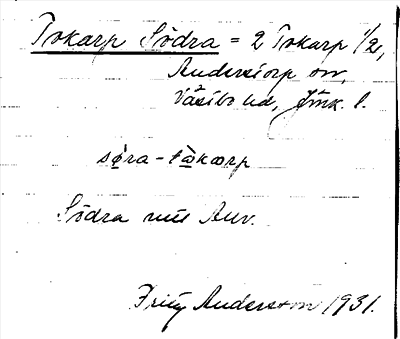 Tokarp Södra = 2 Tokarp 1/2,
Anderstorp sn,
Västbo hd, Jönk. l.
so̤ra - tåkarp
Södra Anv.
Fritz Anderson 1931.